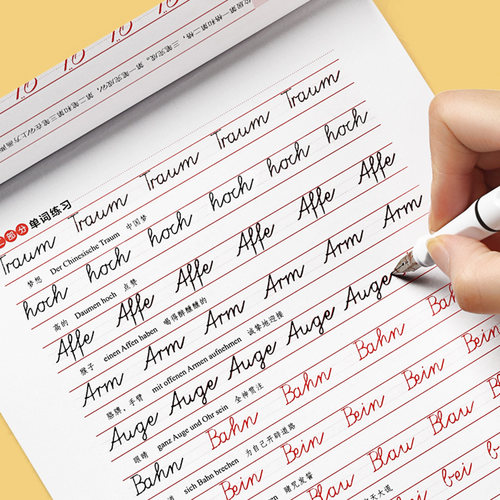 部分 单词练习
Traum Traum Traum Traum Traum
梦想 Der Chinesische Traum 中国梦
hoch hoch hoch hoch hoch hoch
高的 Daumen hoch 点赞
Affe Affe Affe Affe Affe Affe
猴子 einen Affen haben 喝得醉醺醺的
Arm Arm Arm Arm Arm Arm
胳膊，手臂 mit offenen Armen aufnehmen 诚挚地迎接
Auge Auge Auge Auge Auge
眼睛 ganz Auge und Ohr sein 全神贯注
Bahn Bahn Bahn Bahn Bahn
sich Bahn brechen 为自己开辟道路
Bein Bein Bein Bein Bein
赌咒发誓
Blau Blau Blau Blau
bei bei